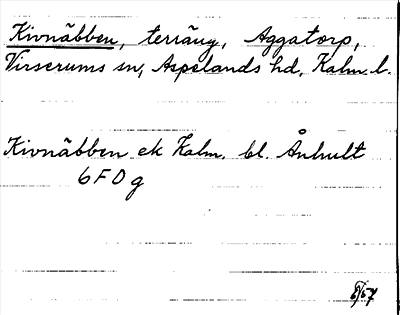 Kivnäbben, terräng, Aggatorp,
Virserums sn, Aspelands hd, Kalm. l.
Kivnäbben ek Kalm. bl. Ånhult
6F0g